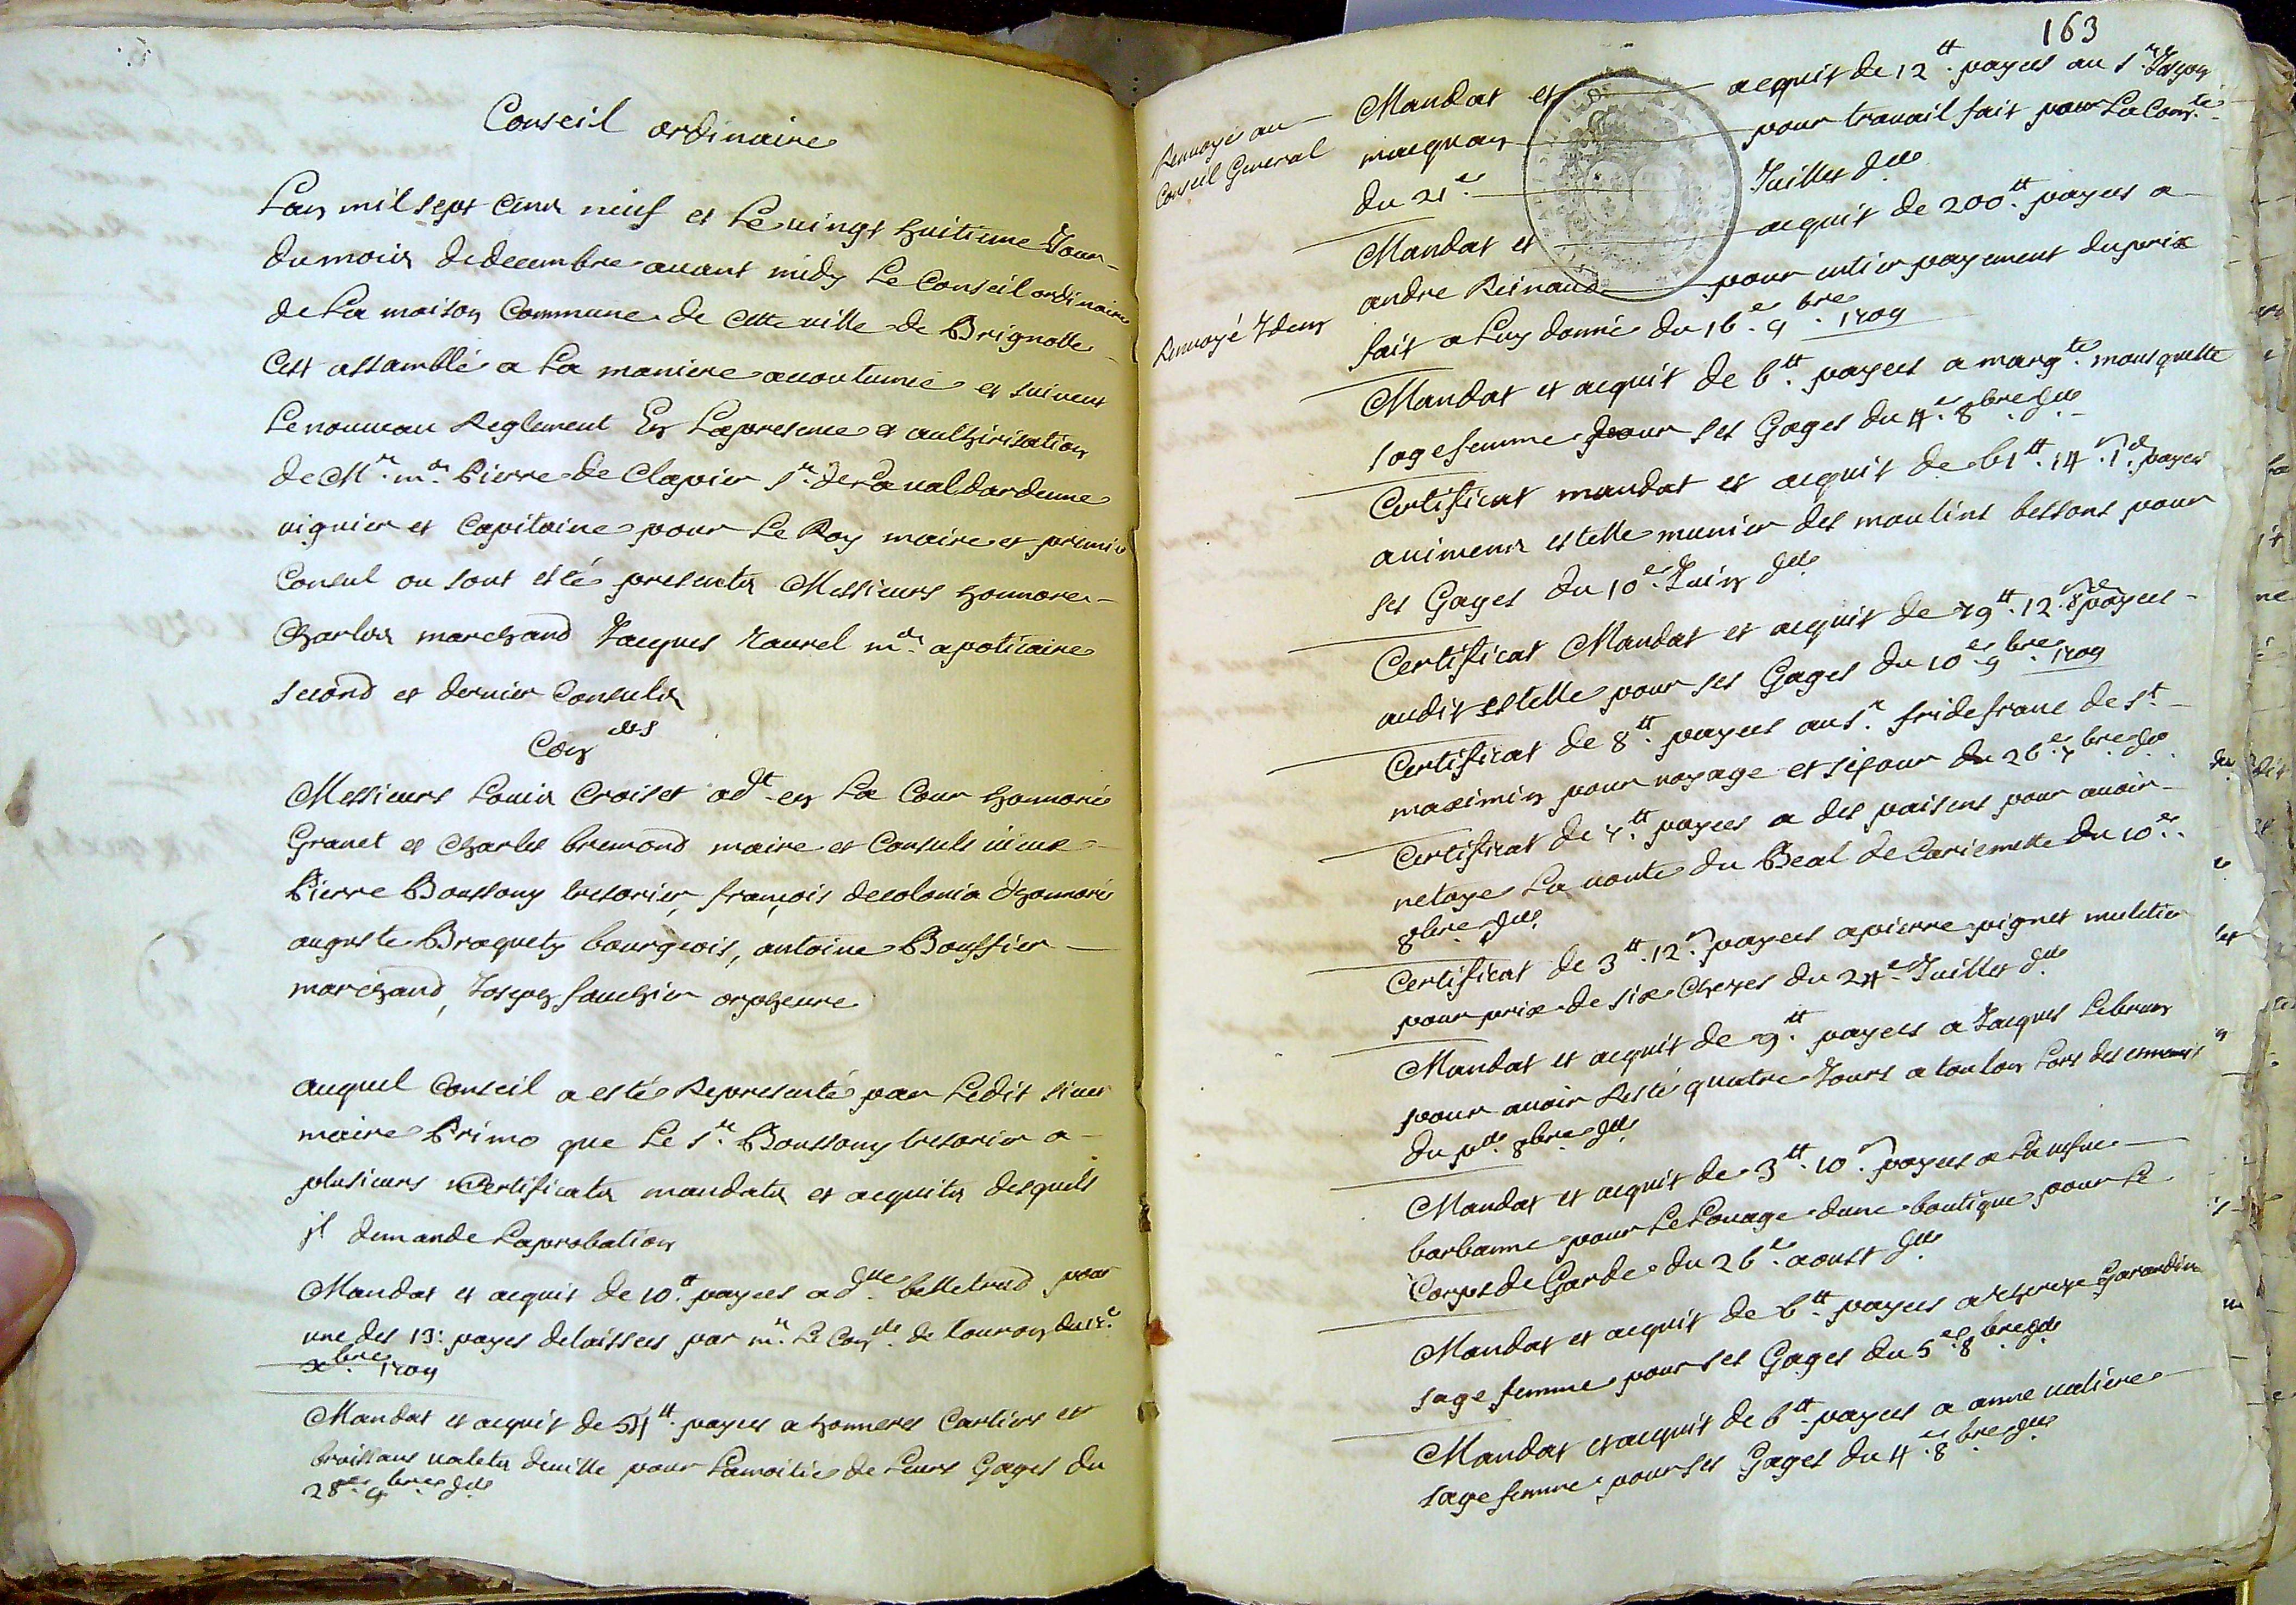 Conseil ordinaire
Lan mil sept cens neuf et Le vingt huitieme Jour
du mois de decembre avant midy Le Conseil ordinaire
de La maison Commune de cette ville de Brignolle
cest assamblé a La maniere acoutumée et suivent
Le nouveau Reglement En La presence et authirisation
de Mr. mr. Pierre de Clapier sr. de La val dardenne
viguier et Capitaine pour Le Roy maire et premier
Consul ou sont esté presents Messieurs honnore
Charles marchand Jacques Laurel me. apoticaire
second et dernier Consuls
Conrs
Messieurs Louis Croiset adt en La Cour honnoré
Granet et Charles bremond maire et Consuls vieux
Pierre Boussony tresorier, françois decolonia dhonnoré
auguste Braquety bourgeois, antoine Bouffier
marchand, Joseph fauchier orpheure
auquel Conseil a esté Representé par Ledit sieur
maire Primo que Le sr. Boussony tresorier a
plusieurs Certificats mandats et acquits desquels
jl demande Laprobation
Mandat et acquit de 10tt. payees a dlle. belletrud pour
une des 13. payes delaissees par mr. Le de
xbre 1709
Mandat et acquit de 54tt. payes a honneres Cartiers et
broissans valets deville pour Lamoitié de Leurs Gages du
28e. 9bre dt
163
Renvoyé au
Conseil General
Mandat et acquit de 12tt. payees au sr. Joseph
maquan pour travail fait pour La Comté
du 21e. Juillet dt
Mandat et acquit de 200tt. payes a
Renvoyé Idem
andre Reinaud pour entier payement du prix
fait a Luy donné du 16e. 9bre. 1709
Mandat et acquit de 6tt. payees a margte. mousquette
sagefemme pour ses Gages du 4e. 8bre dt
Certificat mandat et acquit de 61tt. 14s. 1d. payes
estelle munier des moulins bessons pour
ses Gages du 10e. Juin dt
Certificat Mandat et acquit de 79tt. 12s. 8d payees
audit estelle pour ses Gages du 10e 9bre 1709
Certificat de 8tt. payees au sr. fridefranc de st.
maximin pour voyage et sejour du 26e. 7bre dt
Certificat de 4tt. payees a des paisens pour avoir
netoye La voute du Beal de Cariemette du 10e.
8bre dt
Certificat de 3tt. 12s. payees a pierre pignet muletier
pour prix de six Cherges du 24e Juillet dt
Mandat et acquit de 9tt. payees a Jacques Lebrun
pour avoir Resté quatre Jours a toulon Lors des
du pr. 8bre dt
Mandat et acquit de 3tt. 10s. payees a La vefue
barbanne pour Le Louage dune boutique pour Le
Corps de Garde du 26e aoust dt
Mandat et acquit de 6tt. payees a therese Garandin
sage femme pour ses Gages du 5e. 8bre dt
Mandat et acquit de 6tt. payees a anne valiere
sage femme pour ses Gages du 4e. 8bre dt